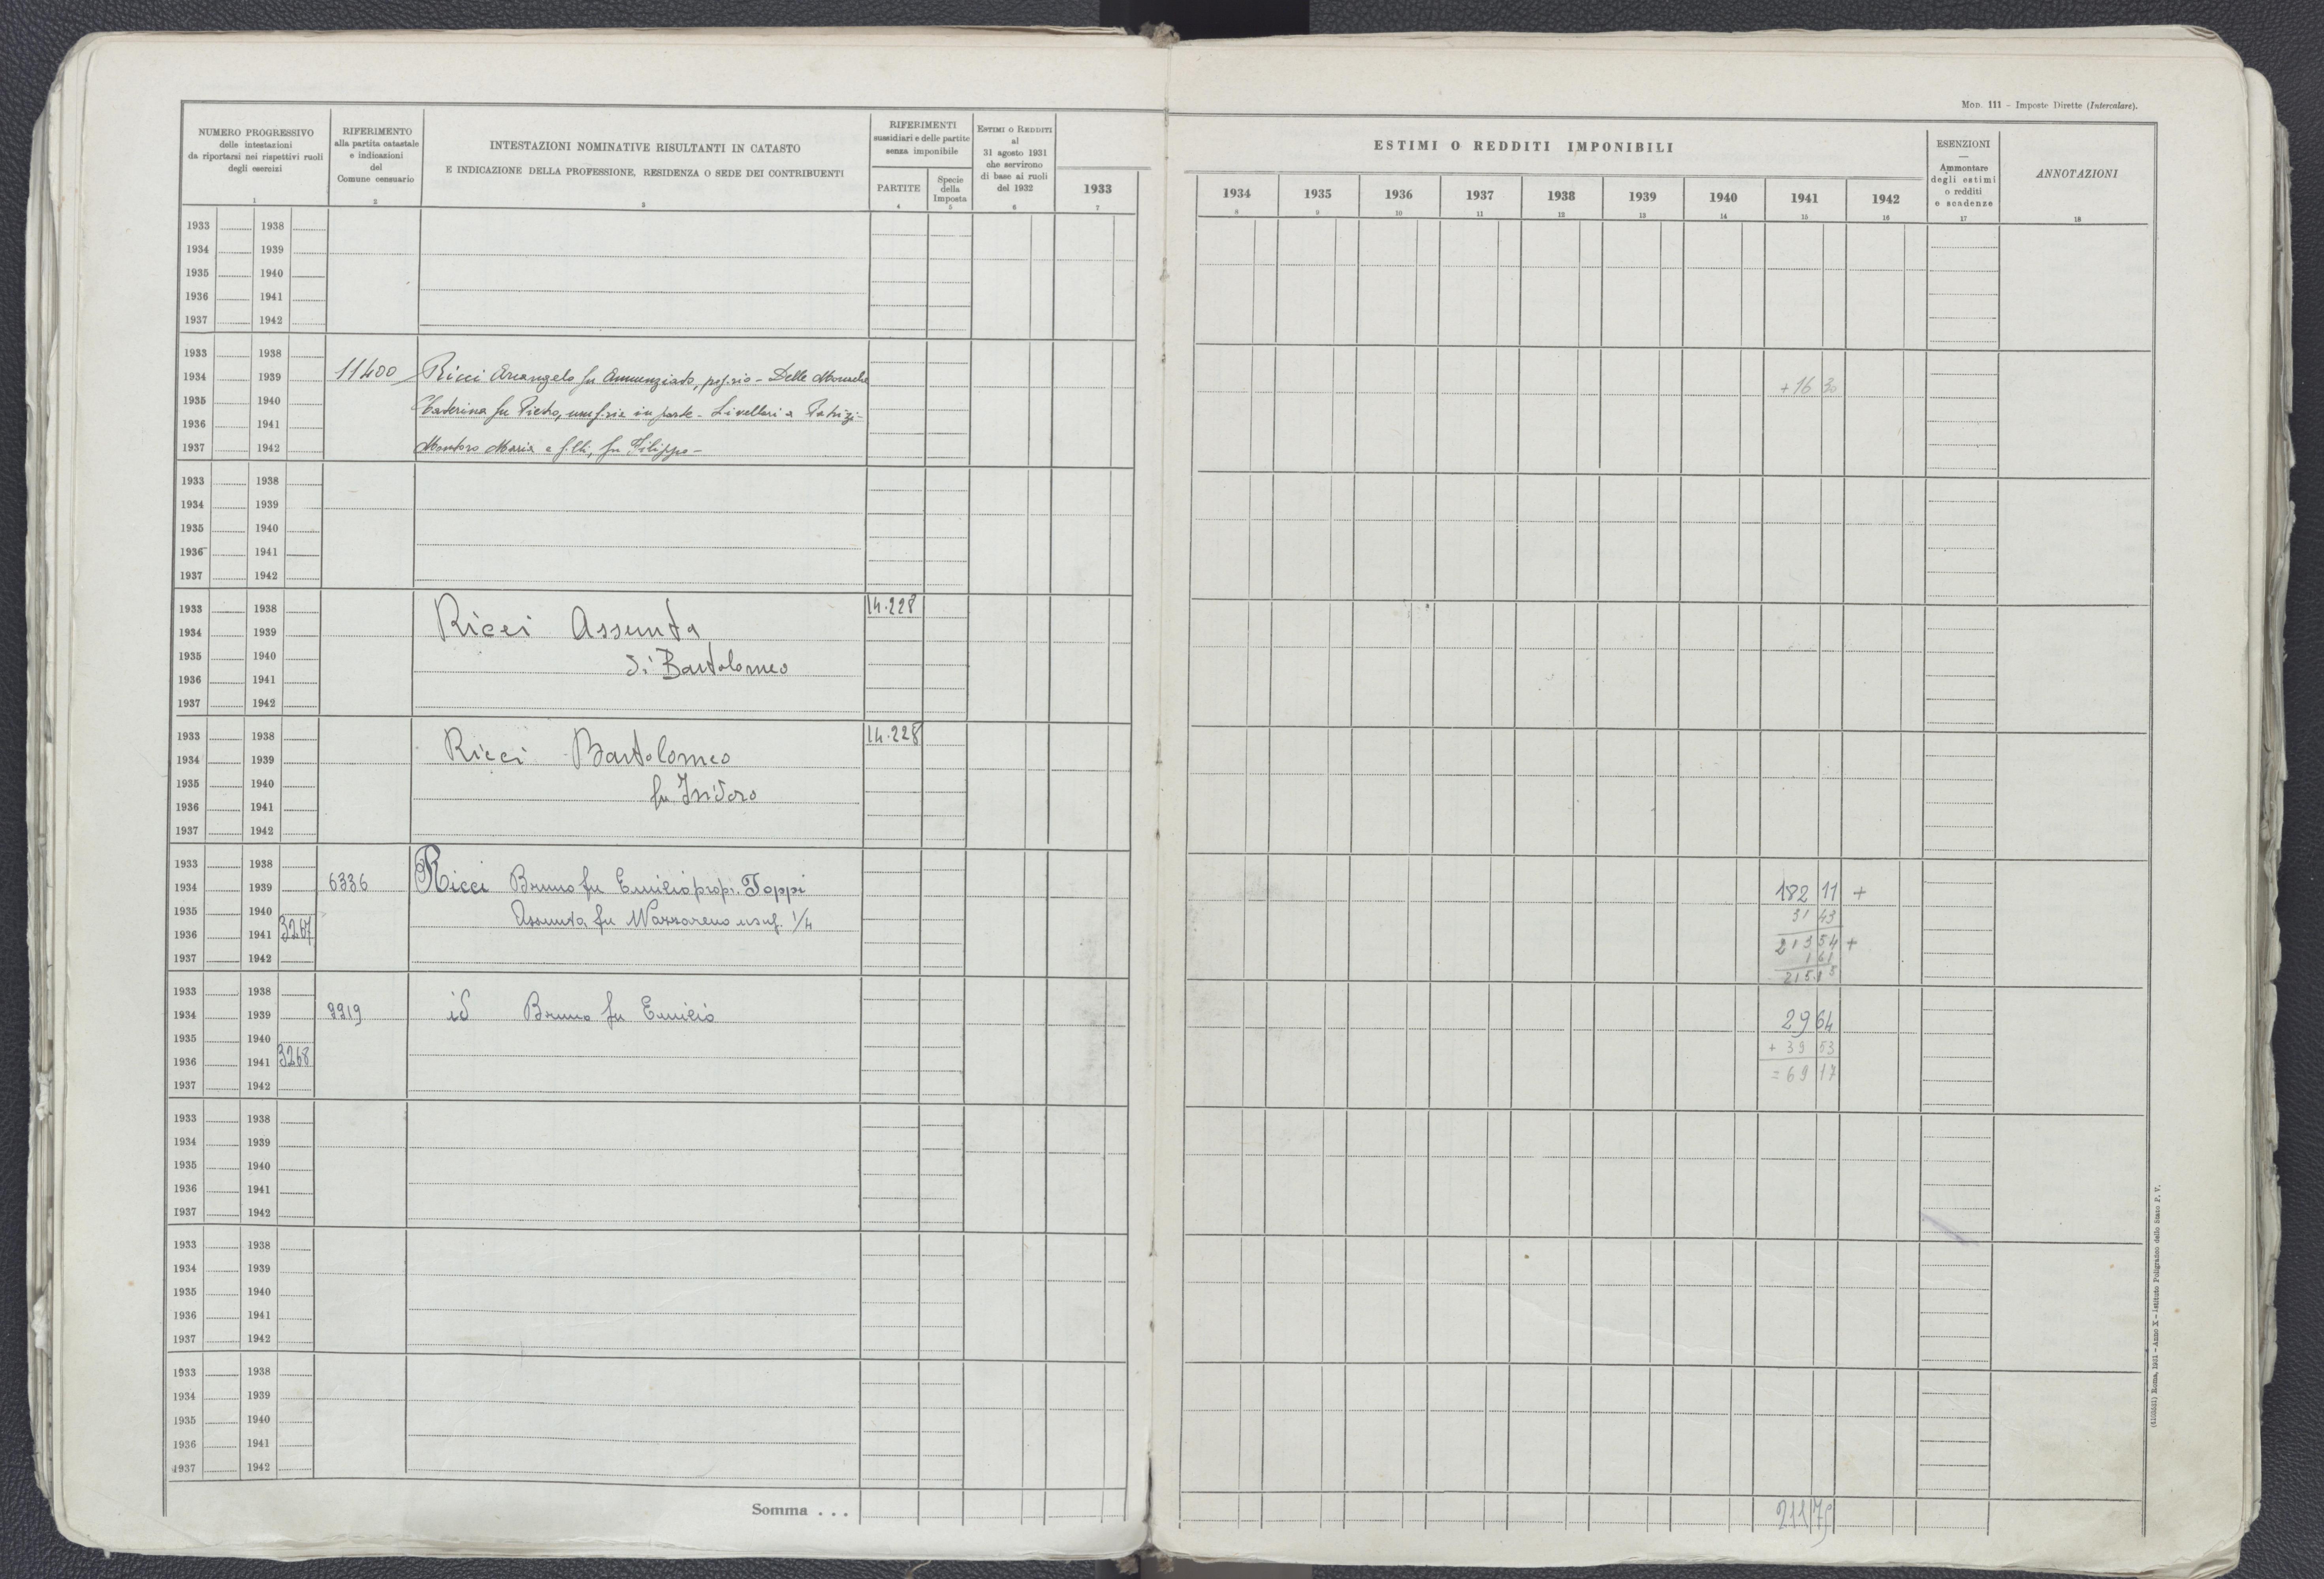 MOD. 111 – Imposte Dirette (Intercalare).
NUMERO PROGRESSIVO
delle intestazioni
da riportarsi nei rispettivi ruoli
degli esercizi
1
RIFERIMENTO
alla partita catastale
e indicazioni
del
Comune censuario
2
INTESTAZIONI NOMINATIVE RISULTANTI IN CATASTO
E INDICAZIONE DELLA PROFESSIONE, RESIDENZA O SEDE DEI CONTRIBUENTI
3
RIFERIMENTI
sussidiari e delle partite
senza imponibile
PARTITE
4
Specie
della
Imposta
5
ESTIMI O REDDITI
al
31 agosto 1931
che servirono
di base ai ruoli
del 1932
6
ESTIMI O REDDITI IMPONIBILI
1933 1934 1935 1936 1937 1938 1939 1940 1941 1942
7 8 9 10 11 12 13 14 15 16
ESENZIONI
—
Ammontare
degli estimi
o redditi
e scadenze
17
ANNOTAZIONI
18
1933 1938
1934 1939
1935 1940
1936 1941
1937 1942
1933 1938
1934 1939 11400 Ricci Arcangelo fu Annunziato, prop.rio – Delle Monache + 16 30
1935 1940 Caterina fu Pietro, usuf.ria in parte – Livellari a Patrizi-
1936 1941
1937 1942 Montoro Maria e f.lli, fu Filippo –
1933 1938
1934 1939
1935 1940
1936 1941
1937 1942
1933 1938 14.228
1934 1939 Ricci Assunta
1935 1940 di Bartolomeo
1936 1941
1937 1942
1933 1938 14.228
1934 1939 Ricci Bartolomeo
1935 1940 fu Isidoro
1936 1941
1937 1942
1933 1938
1934 1939 6336 Ricci Bruno fu Emilio propr. Toppi 182 11 +
1935 1940 Assunta fu Nazzareno usuf. 1/4 31 43
1936 1941 3267 213 54 +
1937 1942 1 61
215
1933 1938
1934 1939 9919 id Bruno fu Emilio 29 64
1935 1940 + 39 53
1936 1941 3268 = 69 17
1937 1942
1933 1938
1934 1939
1935 1940
1936 1941
1937 1942
1933 1938
1934 1939
1935 1940
1936 1941
1937 1942
1933 1938
1934 1939
1935 1940
1936 1941
1937 1942
Somma . . . 211 75
Roma, 1931 – Anno X – Istituto Poligrafico dello Stato P. V.